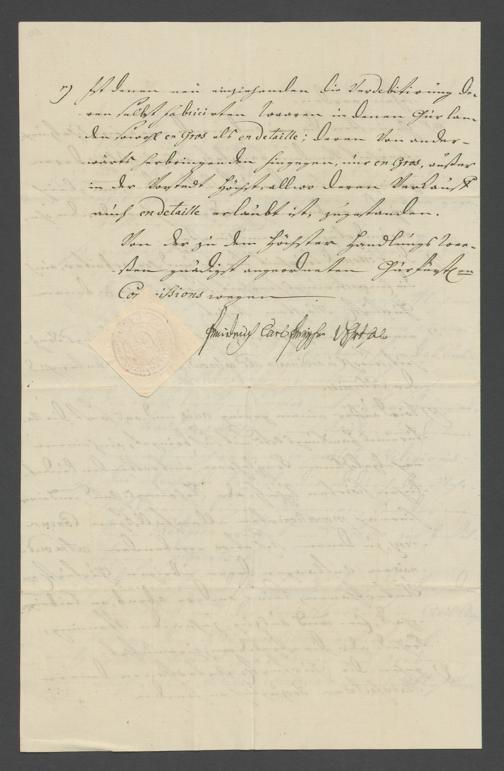 n) Ist denen neu einziehenden die Verdebitirung de-
ren selbst fabricirten Waaren in denen Churlan-
den sowohl en Gros als en detaille; deren Von ander-
wärts herbringenden hingegen, nur en Gros, außer
in der Vorstadt Höchst, allwo deren Verkauff
auch en detaille erlaubt ist, zugestanden.
Von der zu dem Höchster Handlungs Wee-
ßen gnädigst angeordneten Churfürstlen
Commissions wegen
Friderich Carl Joseph